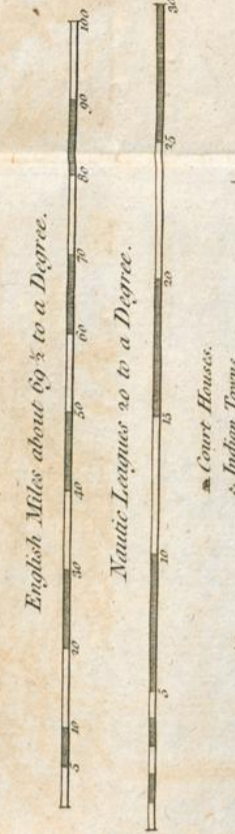 English Miles about 69½ to a Degree.
5 10 20 30 40 50 60 70 80 90 100
Nautic Leagues 20 to a Degree.
5 10 15 20 25 30
Court Houses.
Indian Towns